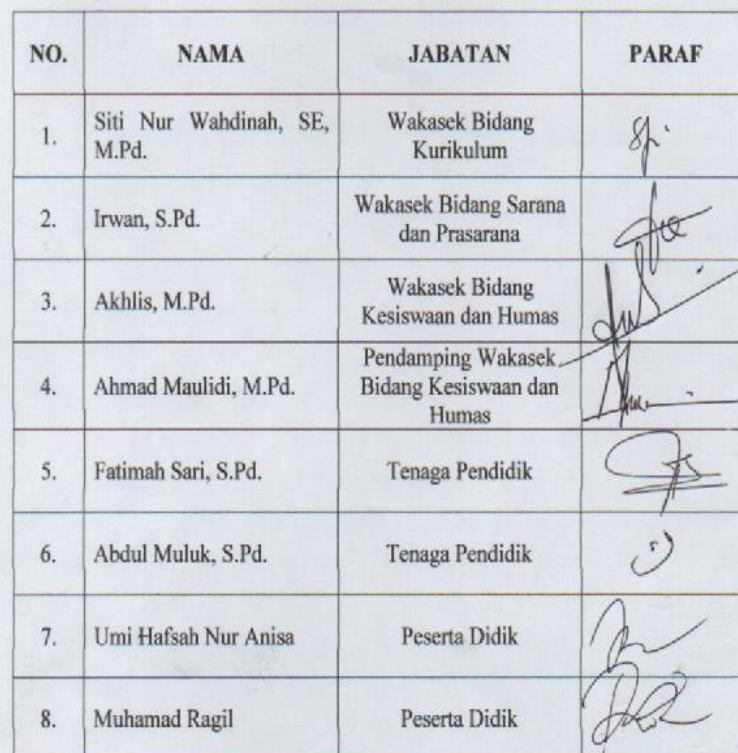 NO. NAMA JABATAN PARAF
1. Siti Nur Wahdinah, SE, Wakasek Bidang
M.Pd. Kurikulum
2. Irwan, S.Pd. Wakasek Bidang Sarana
dan Prasarana
3. Akhlis, M.Pd. Wakasek Bidang
Kesiswaan dan Humas
4. Ahmad Maulidi, M.Pd. Pendamping Wakasek
Bidang Kesiswaan dan
Humas
5. Fatimah Sari, S.Pd. Tenaga Pendidik
6. Abdul Muluk, S.Pd. Tenaga Pendidik
7. Umi Hafsah Nur Anisa Peserta Didik
8. Muhamad Ragil Peserta Didik